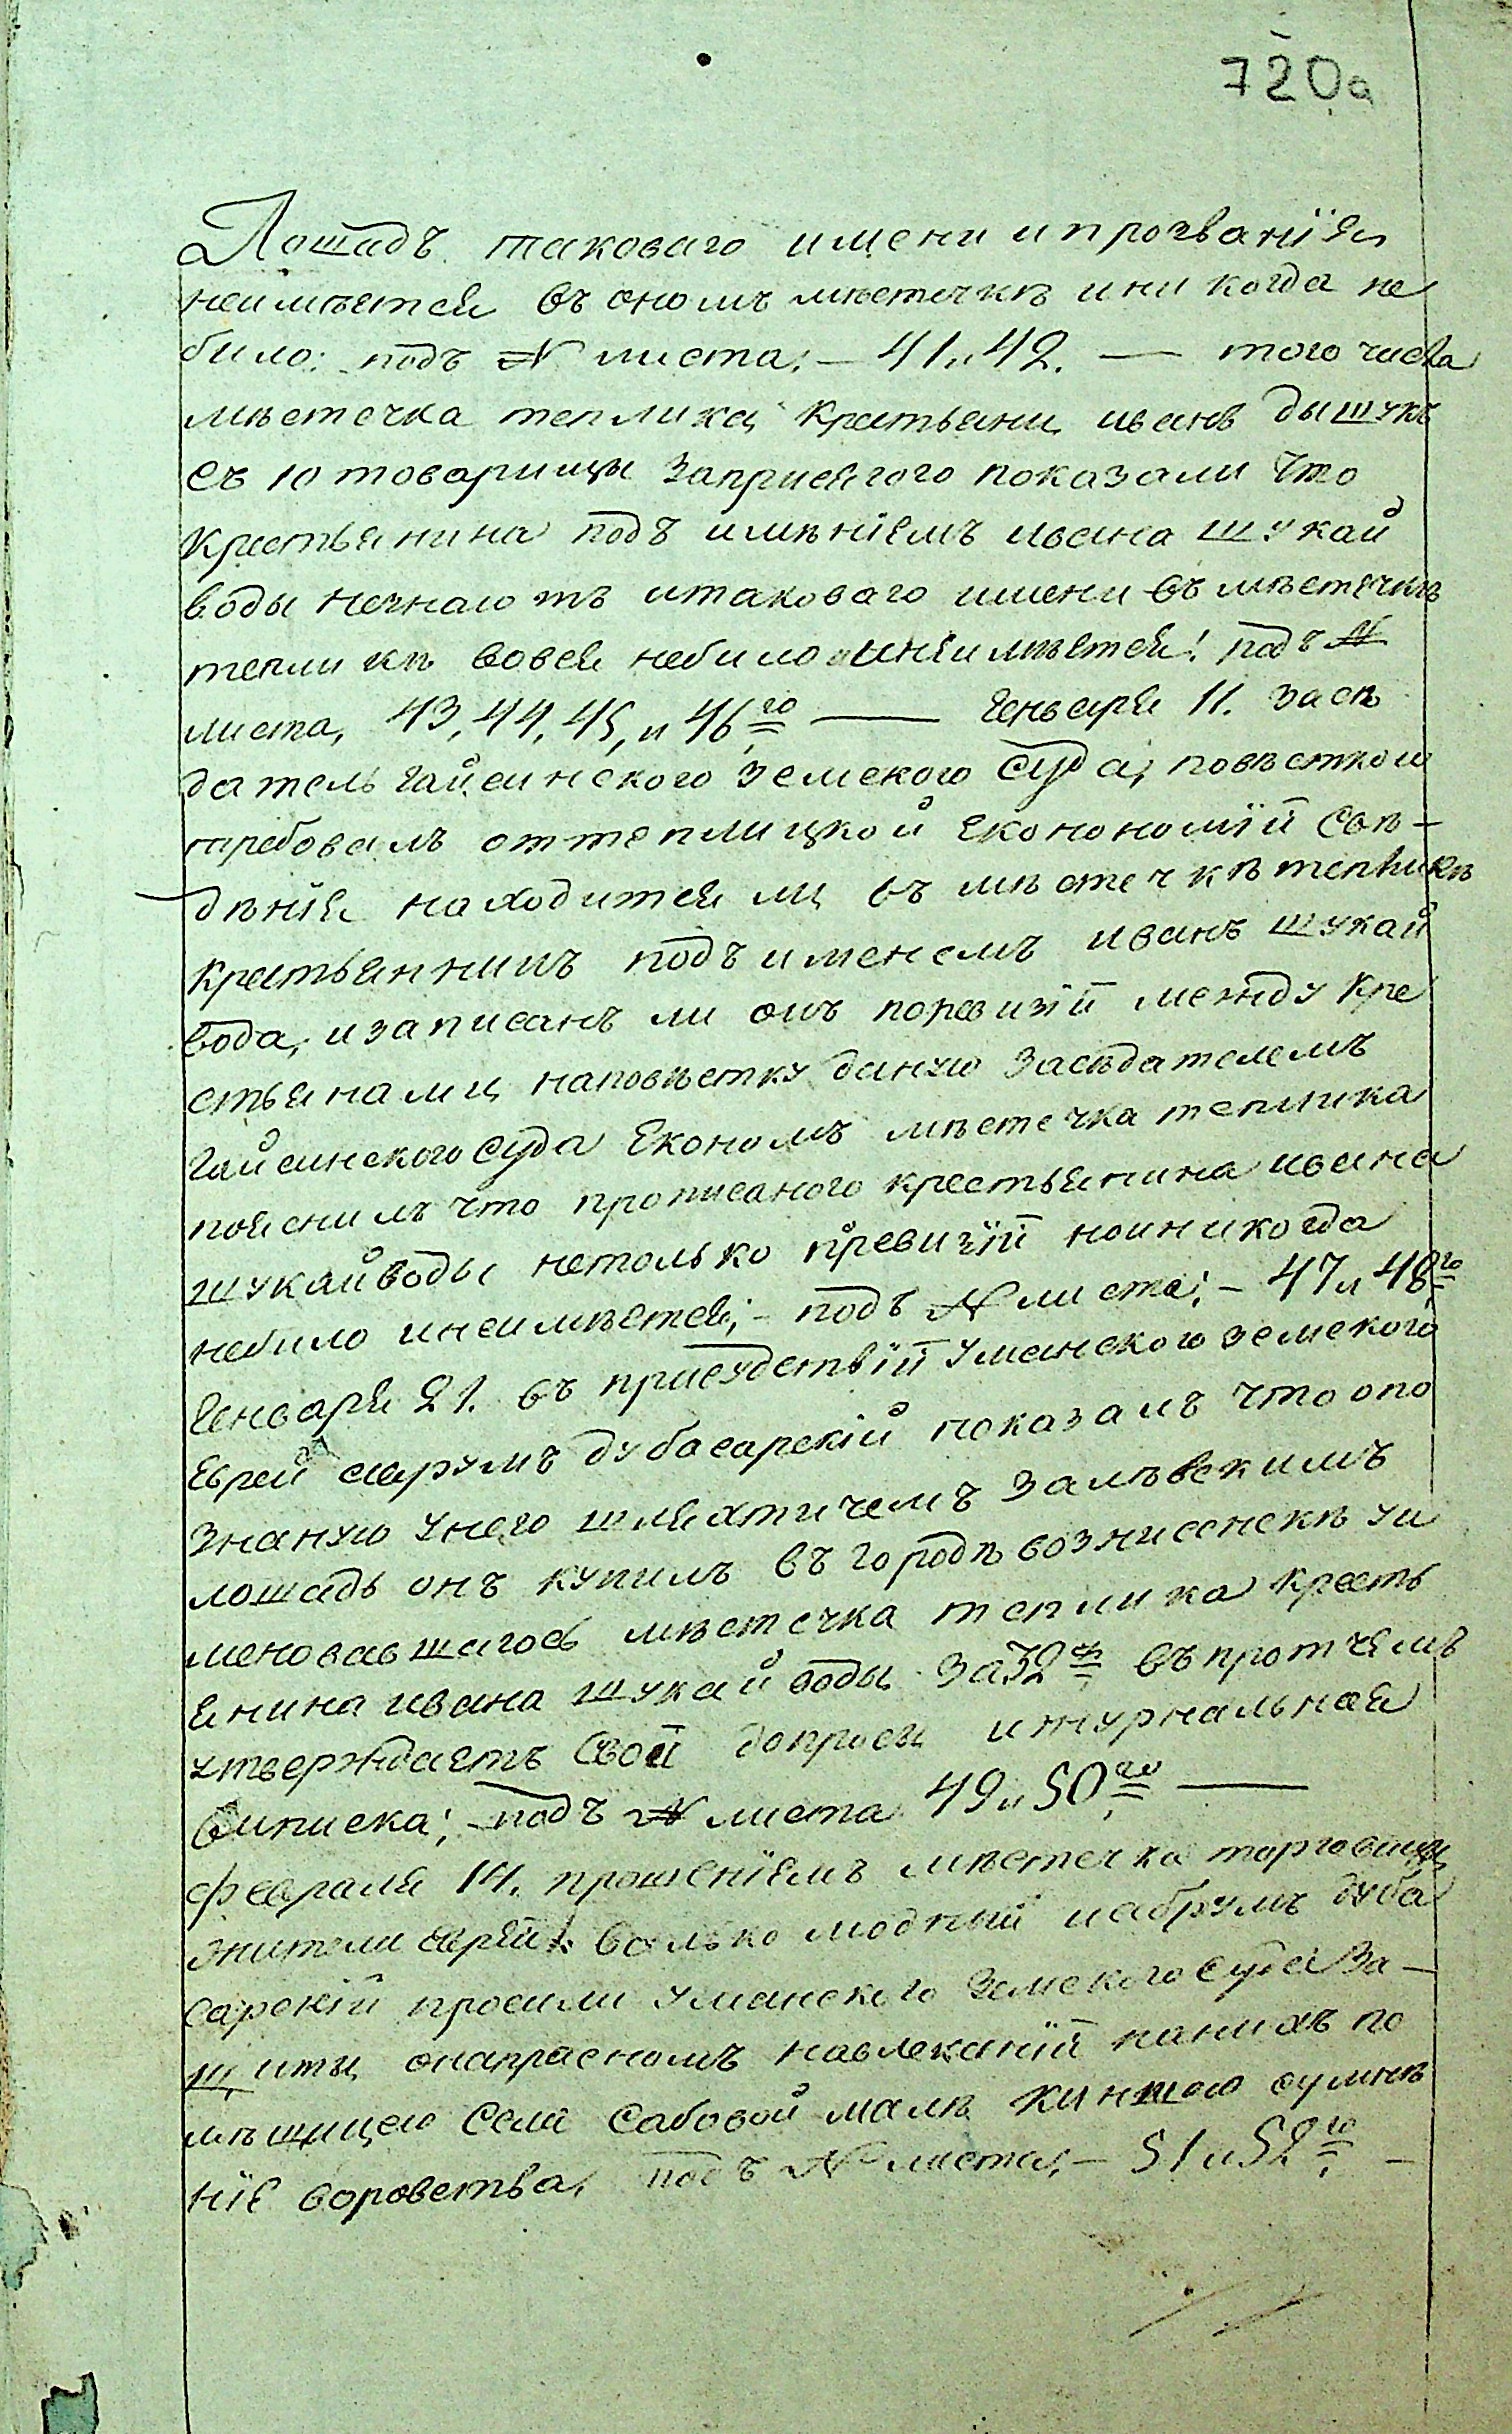 720а
Лошадъ таковаго имени и прозванїя
неимѣется въ ономъ мѣстечкѣ ини когда не
било: подъ № листа: — 41 и 42. — того числа
мѣстечка теплика крестьяни иванъ дышукъ
съ 10 товарищы заприсягого показали что
крестьянина подъ имѣніемъ ивана шукай
воды незнаютъ итаковаго имени въ мѣстечкѣ
тепликѣ вовся небило инеимѣется: подъ №
листа, 43, 44, 45, и 46го — Генваря 11. засѣ
датель гайсинского земского суда, повѣсткою
требовалъ оттеплицкой Економїй свѣ-
дѣнїя находится ли въ мѣстечкѣ тепликѣ
крестьянинъ подъ именемъ иванъ шукай
вода, изаписанъ ли онъ поревизїй между кре
стьянами, наповѣстку даную засѣдателемъ
гайсинского суда Економъ мѣстечка теплика
пояснилъ что прописаного крестьянина ивана
шукайводы нетолько поревизїй ноиникогда
небило инеимѣется; — подъ № листа: — 47 и 48го
Генваря 21. въ присудствїй уманского земского
Еврей аврумъ дубасарскій показалъ что опо
знаную унего шляхтичемъ залѣвскимъ
лошадь онъ купилъ въ городѣ вознисенскѣ уи
меновавшагось мѣстечка теплика кресть
янина ивана шукай воды за 32 въпротчемъ
утверждаетъ свой допросы ижурнальная
виписка; — подъ № листа 49 и 50го —
февраля 14. прошенїемъ мѣстечка торговицы
жители Еврей волько модный иабрумъ дуба
сарскїй просили уманского земского суда за-
щиты онапрасномъ навлеканїй нанихъ по
мѣщицею села сабовой малѣ киншою сумнѣ
нїе воровства, подъ № листа, — 51 и 52го —